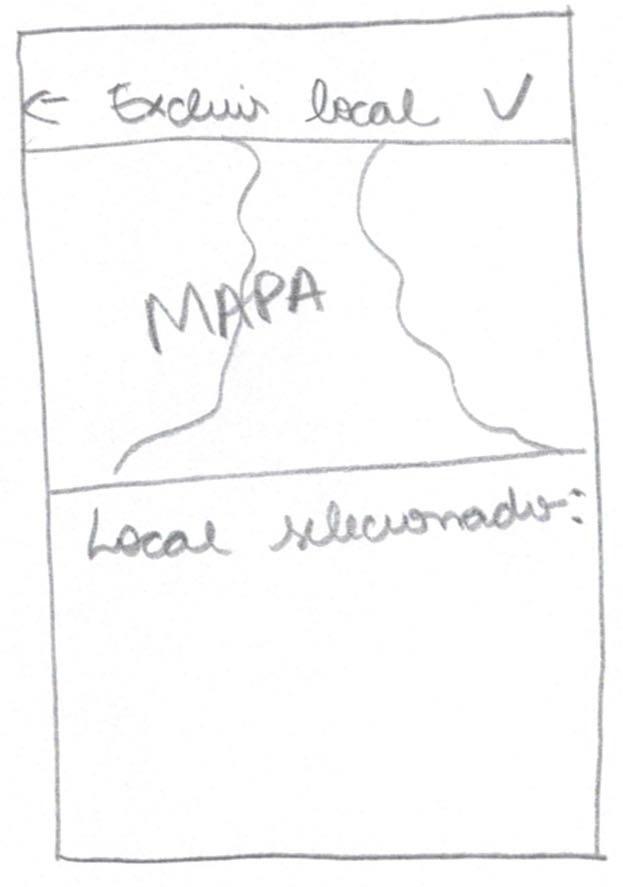 ← Excluir local ✓
MAPA
Local selecionado: